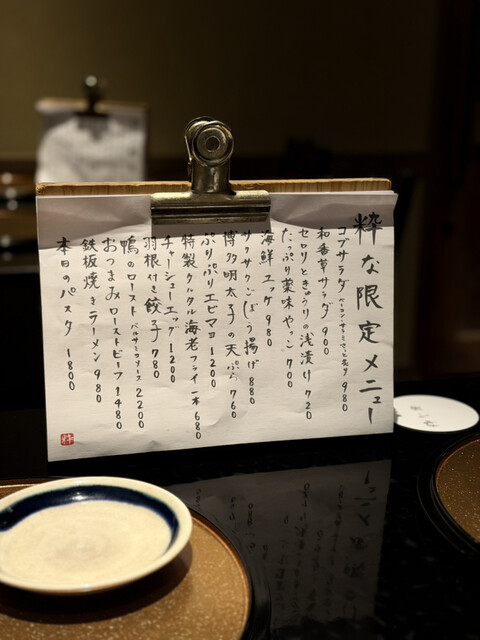 粋な限定メニュー
コブサラダ ベーコン・サラミマッと炙り 980
和香草サラダ 900
セロリときゅうりの浅漬け 720
たっぷり薬味やっこ 700
海鮮ユッケ 980
サクサクごぼう揚げ 880
博多明太子の天ぷら 760
ぷりぷりエビマヨ 1200
特製クルクル海老フライ一本 680
チャーシューエッグ 1200
羽根付き餃子 780
鴨のロースト バルサミコソース 2200
おつまみローストビーフ 1480
鉄板焼きラーメン 980
本日のパスタ 1800
粋